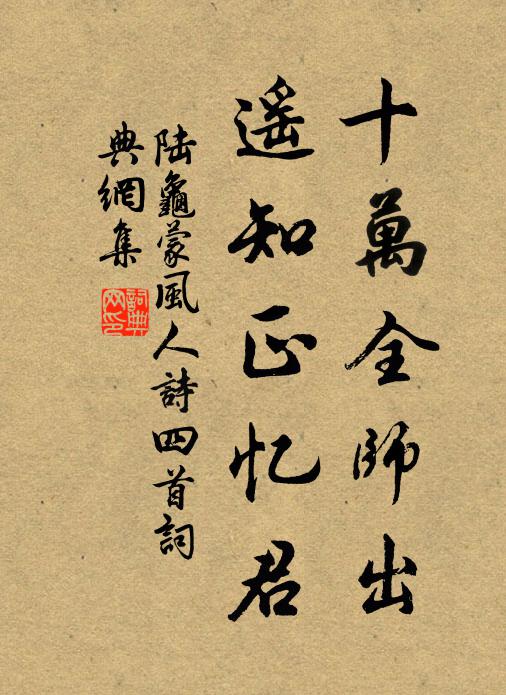 十萬全師出
遥知正忆君
陆龜蒙風人詩四首詞
典網集
詞典
网印